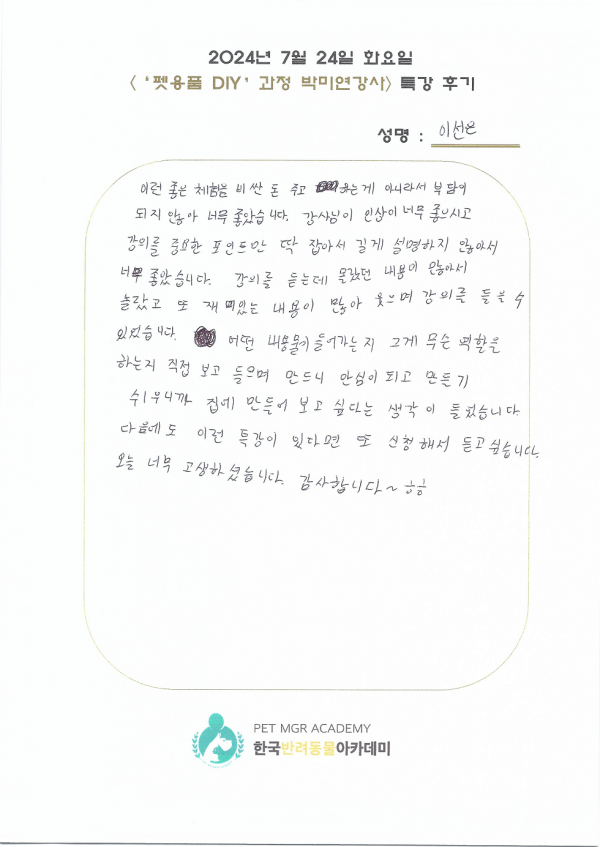 2024년 7월 24일 화요일
< '펫용품 DIY' 과정 박미연강사> 특강 후기
성명 : 이선은
이런 좋은 체험을 비싼 돈 주고 하는게 아니라서 부담이
되지 않아 너무 좋았습니다. 강사님이 인상이 너무 좋으시고
강의를 중요한 포인트만 딱 잡아서 길게 설명하지 않아서
너무 좋았습니다. 강의를 듣는데 몰랐던 내용이 많아서
놀랐고 또 재미있는 내용이 많아 웃으며 강의를 들을 수
있었습니다. 어떤 내용물이 들어가는지 그게 무슨 역할을
하는지 직접 보고 들으며 만드니 안심이 되고 만들기
쉬우니까 집에 만들어 보고 싶다는 생각이 들었습니다
다음에도 이런 특강이 있다면 또 신청해서 듣고싶습니다.
오늘 너무 고생하셨습니다. 감사합니다~ ㅎㅎ
PET MGR ACADEMY
한국반려동물아카데미